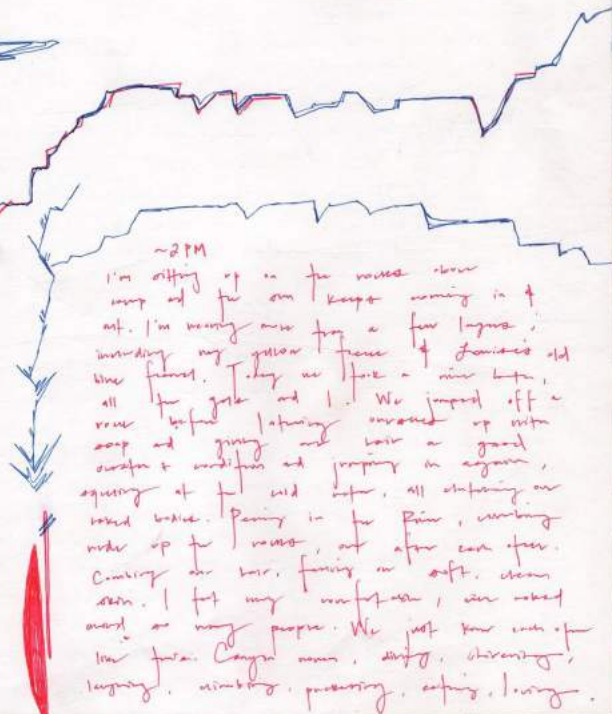 ~2PM
I'm sitting up on the rocks above
camp and the sun keeps coming in &
out. I'm wearing more than a few layers,
including my yellow fleece & Louise's old
blue flannel. Today we took a river bath,
all the gals and I. We jumped off a
rock before lathering ourselves up with
soap and giving our hair a good
and jumping in again,
squealing at the cold water, all
naked bodies. Peeing in the River, climbing
nude up the rocks, one after each other.
Combing our hair, feeling our soft, clean
skin. I felt very comfortable, even naked
around so many people. We just know each other
like this. Canyon women, diving, shivering,
laughing, climbing, eating, loving.